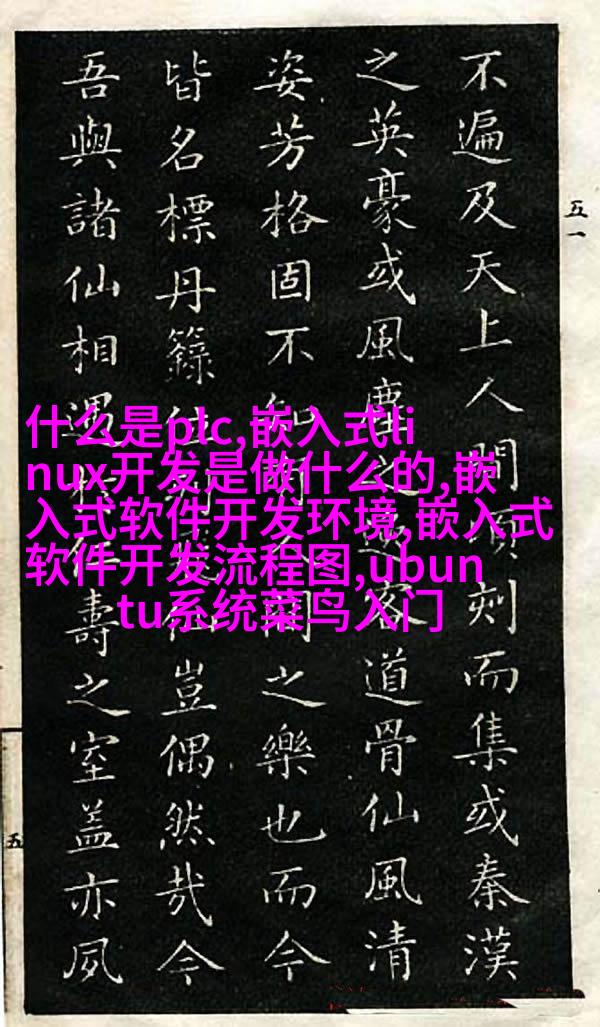 不遍及天上人間頃刻而集或秦漢
之英豪或風塵之客道骨仙風清
姿芳格固不知間之樂也而今
皆名標丹籙位列仙豈偶然哉今
吾與諸仙相遇壽之室蓋亦夙
五一
五
什么是plc,嵌入式li
nux开发是做什么的,嵌
入式软件开发环境,嵌入式
软件开发流程图,ubun
tu系统菜鸟入门